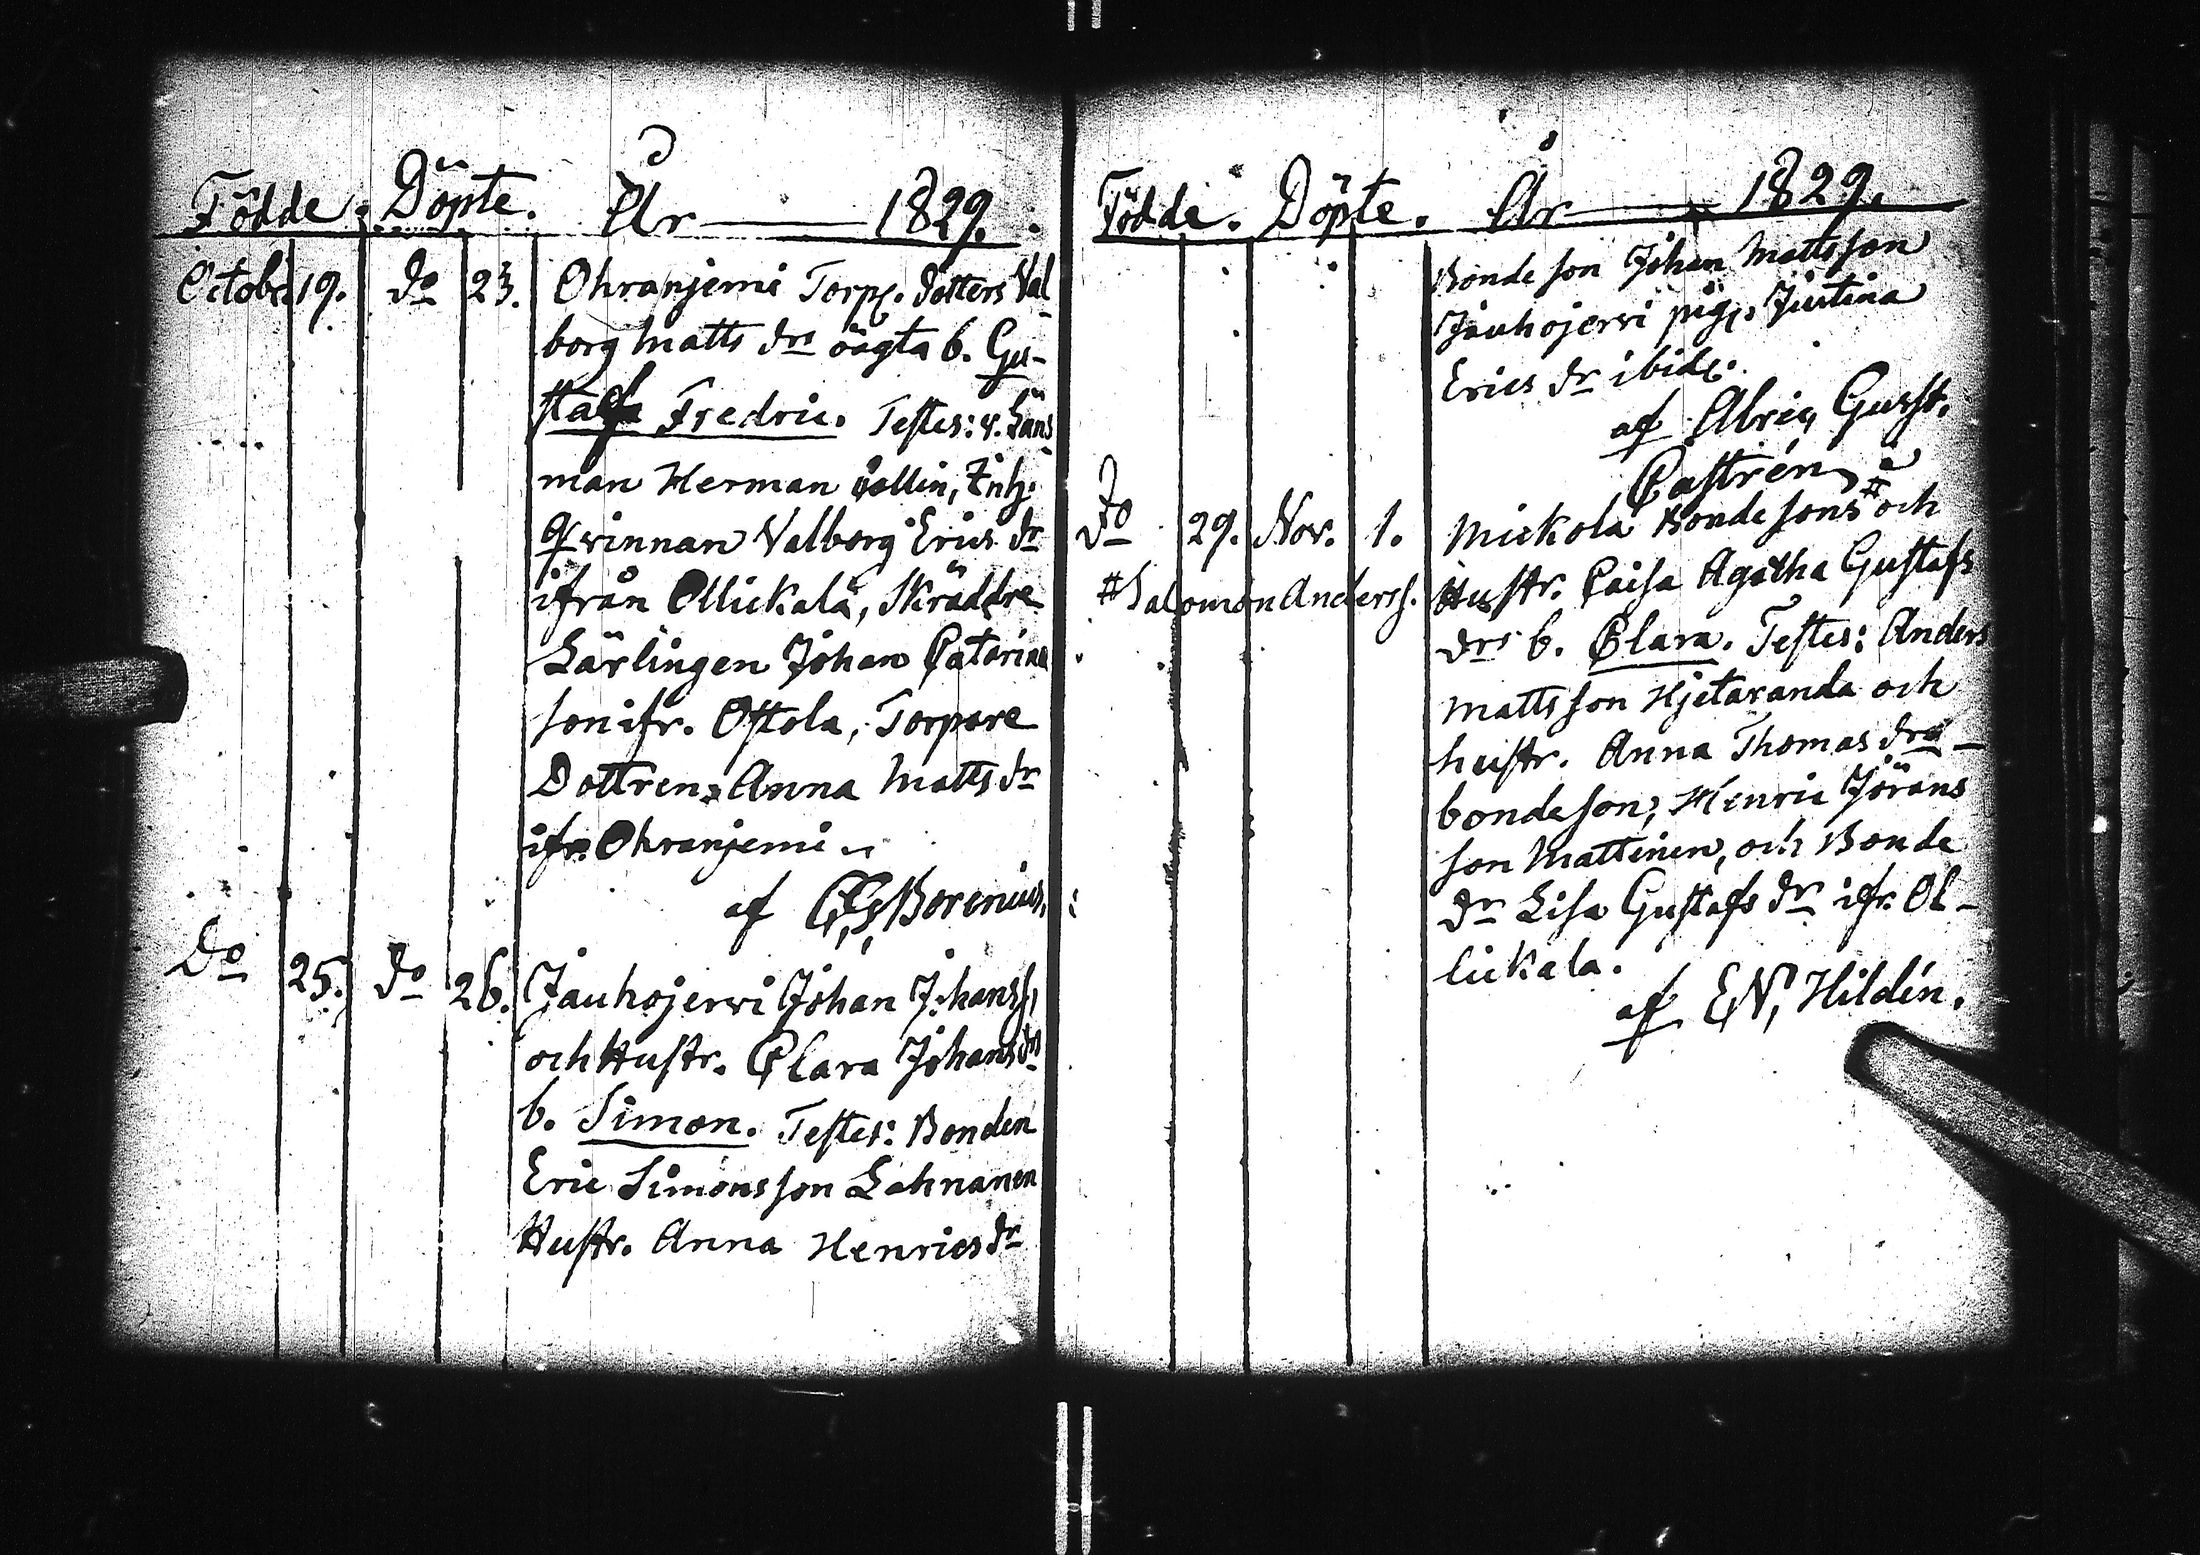 Födde. Döpte. År 1829.
Octobr 19. do 23. Ohranjemi Torp. dotters Val
borg Matts drs oägta b. Gu-
staf Fredric. Testes: v. Läns
man Herman
qvinnan Valborg Erics dr
ifrån Ollickala, Skräddre
Lärlingen Johan Catarina
son ifr. Ostola, Torpare
Dottren Anna Matts dr
ifr. Ohranjemi
af Borenius.
do 25. do 26. Jauhojerwi Johan Johanss.
och Hustr. Clara Johans drs
b. Simon. Testes: Bonden
Eric Simonsson Lahnanen
Hustr. Anna Henrics dr
Födde. Döpte. År 1829.
Bondeson Johan Mattsson
Jauhojerwi pig. Justina
Erics dr ibid.
af Alric, Gust.
Castrén
do 29. Nov. 1. Mickola Bondesons # och
# Salomon Anderss. Hustr. Caisa Agatha Gustafs
drs b. Clara. Testes: Anders
Mattsson Hjetaranda och
hustr. Anna Thomas dra
bondeson, Henric Jörans
son Mattinen, och Bonde
dr Lisa Gustafs dr ifr. Ol-
lickala.
af E. N. Hildén.